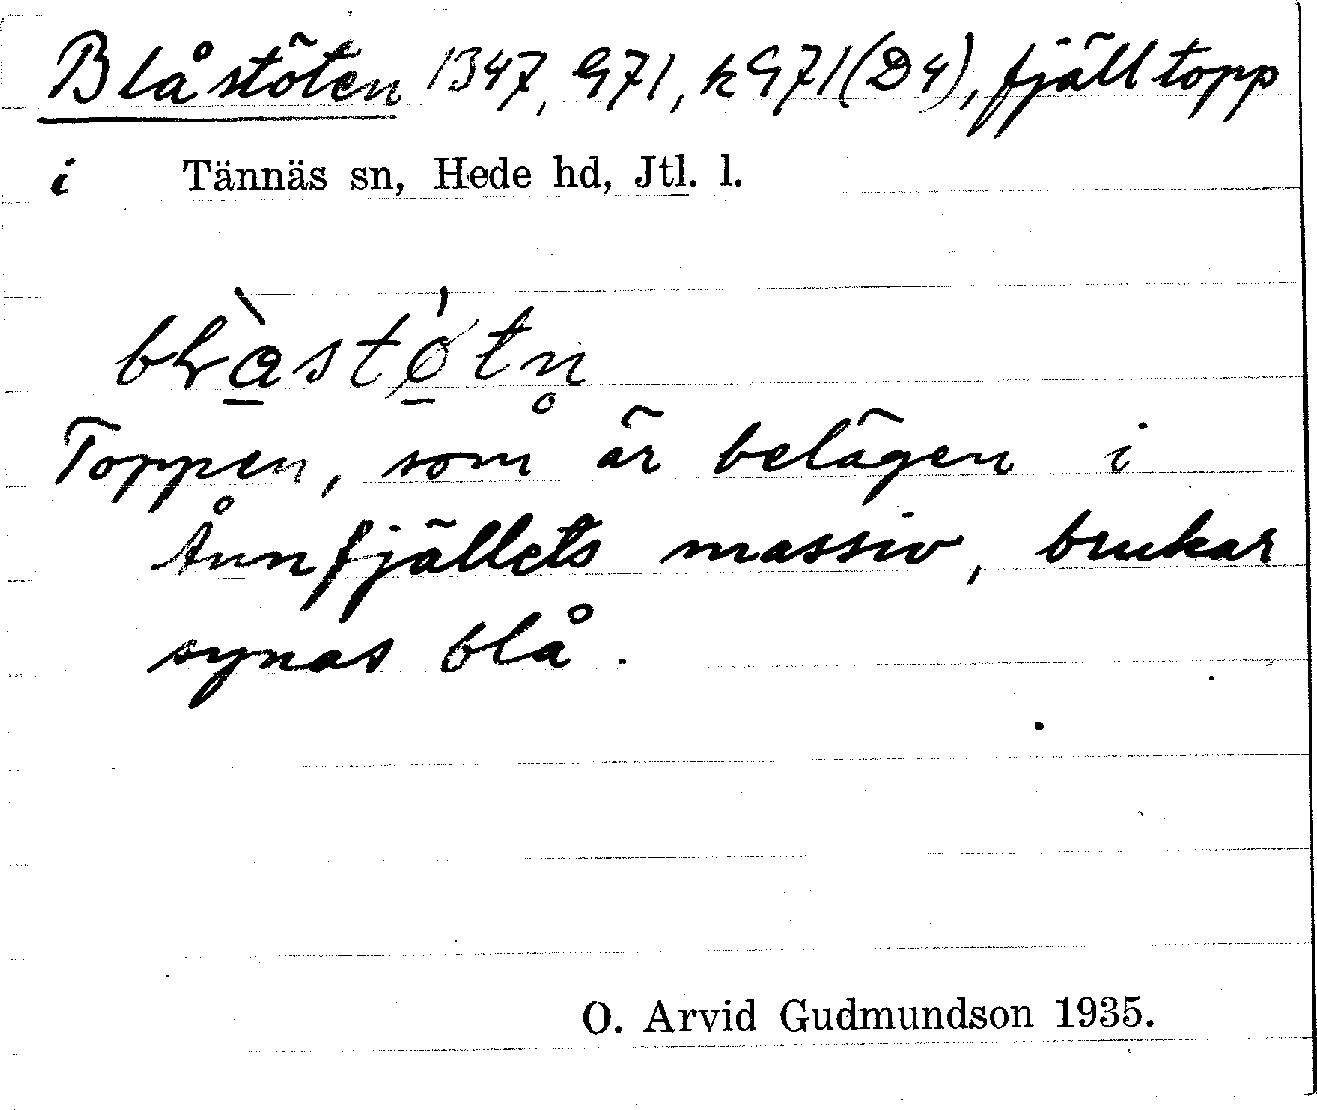 Blåstöten 1347, G71, kG71(D4), fjälltopp
i Tännäs sn, Hede hd, Jtl. l.
Toppen, som är belägen i
Ånnfjällets massiv, brukar
synas blå.
O. Arvid Gudmundson 1935.